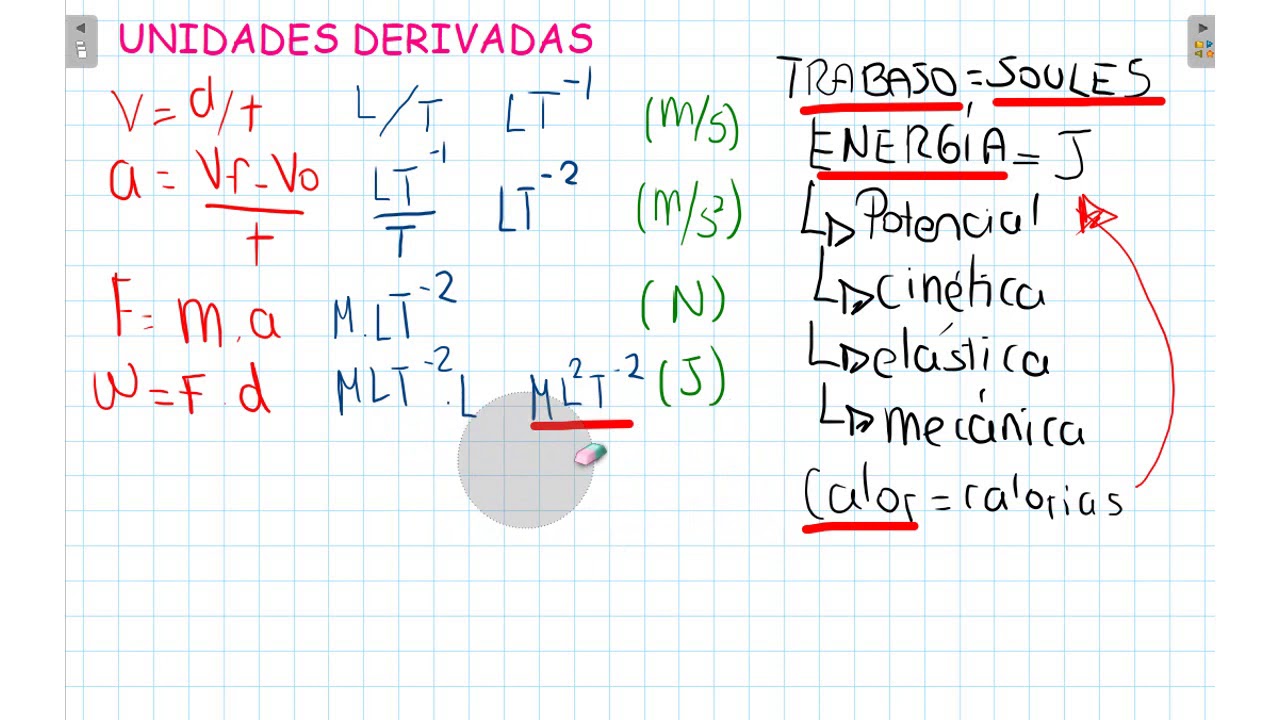 UNIDADES DERIVADAS
V = d/t L/T LT⁻¹ (m/s)
a = Vf - Vo / t LT⁻¹ / T LT⁻² (m/s²)
F = m . a M.LT⁻² (N)
W = F . d MLT⁻² . L ML²T⁻² (J)
TRABAJO = JOULES
ENERGÍA = J
Potencial
cinética
elástica
mecánica
Calor = calorias